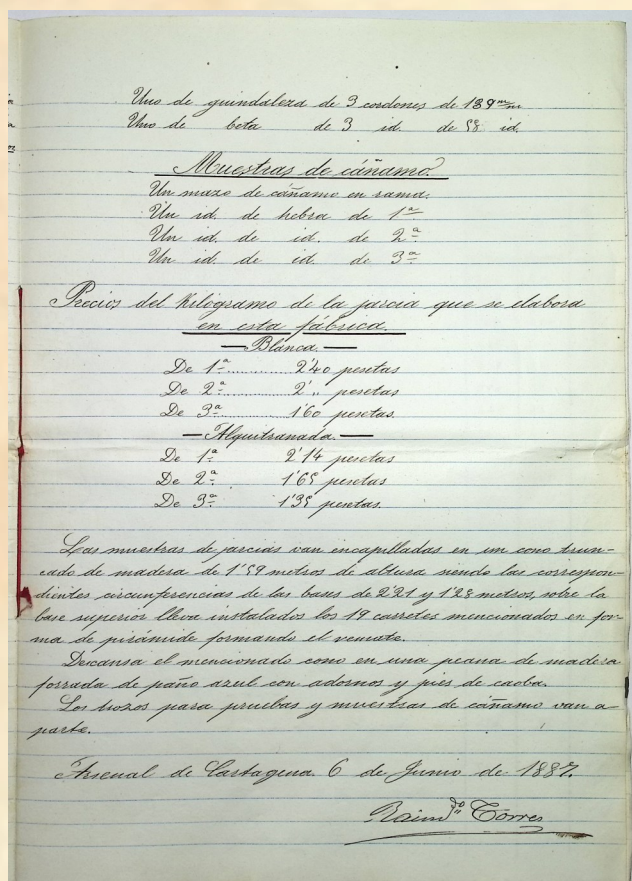 Uno de guindaleza de 3 cordones de 139 m/m
Uno de beta de 3 id. de 58 id.
Muestras de cáñamo.
Un mazo de cáñamo en rama.
Un id. de hebra de 1ª
Un id. de id. de 2ª
Un id. de id. de 3ª
Precios del Kilógramo de la jarcia que se elabora
en esta fábrica.
— Blanca. —
De 1ª............ 2'40 pesetas
De 2ª............ 2' „ pesetas
De 3ª............ 1'60 pesetas.
— Alquitranada. —
De 1ª 2'14 pesetas
De 2ª 1'65 pesetas
De 3ª 1'35 pesetas.
Las muestras de jarcias van encapilladas en un cono trun-
cado de madera de 1'59 metros de altura siendo las correspon-
dientes circunferencias de las bases de 2'21 y 1'23 metros, sobre la
base superior lleva instalados los 19 carretes mencionados en for-
ma de pirámide formando el remate.
Descansa el mencionado cono en una peana de madera
forrada de paño azul con adornos y pies de caoba.
Los trozos para pruebas y muestras de cáñamo van a-
parte.
Arsenal de Cartagena 6 de Junio de 1887.
Raimdo Torres